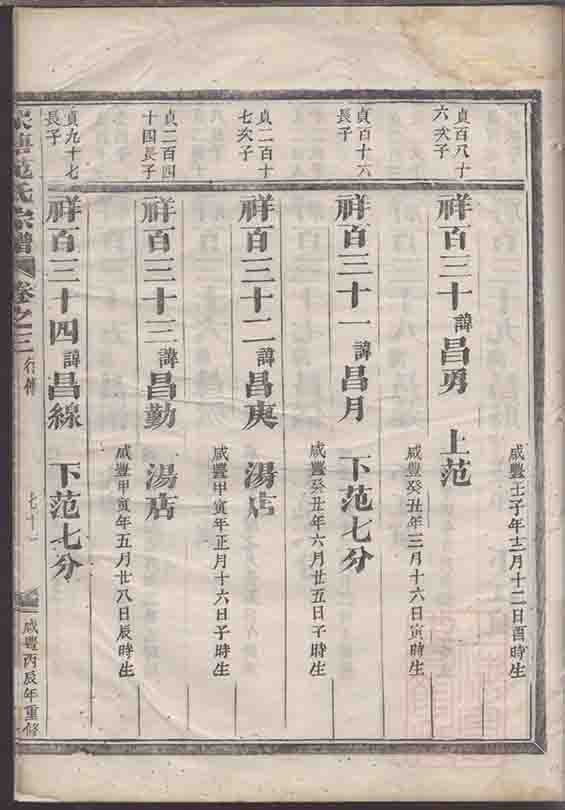 咸豐壬子年十二月十二日酉時生
貞百八十
六次子
祥百三十諱昌勇 上范
咸豐癸丑年三月十六日寅時生
貞百十六
長子
祥百三十一諱昌月 下范七分
咸豐癸丑年六月廿五日子時生
貞二百十
七次子
祥百三十二諱昌庚 湯店
咸豐甲寅年正月十六日子時生
貞二百四
十四長子
祥百三十三諱昌勤 湯店
咸豐甲寅年五月廿八日辰時生
貞九十七
長子
祥百三十四諱昌線 下范七分
范氏宗譜 卷之三 行傳 咸豐丙辰年重修